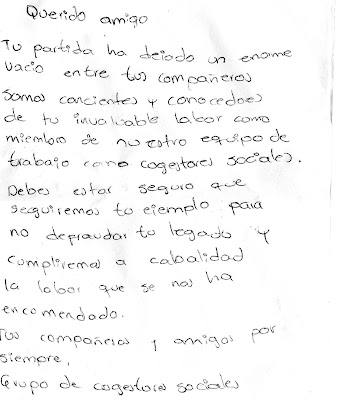 Querido amigo
Tu partida ha dejado un enorme
vacio entre tus compañeros
Somos concientes y conocedoes
de tu invaluable labor como
miembro de nuestro equipo de
trabajo como cogestores sociales.
Debes estar seguro que
seguiremos tu ejemplo para
no depraudar tu legado y
cumpliremos a cabalidad
la labor que se nos ha
encomendado.
Tus compañeros y amigos por
siempre,
Grupo de cogestores sociales